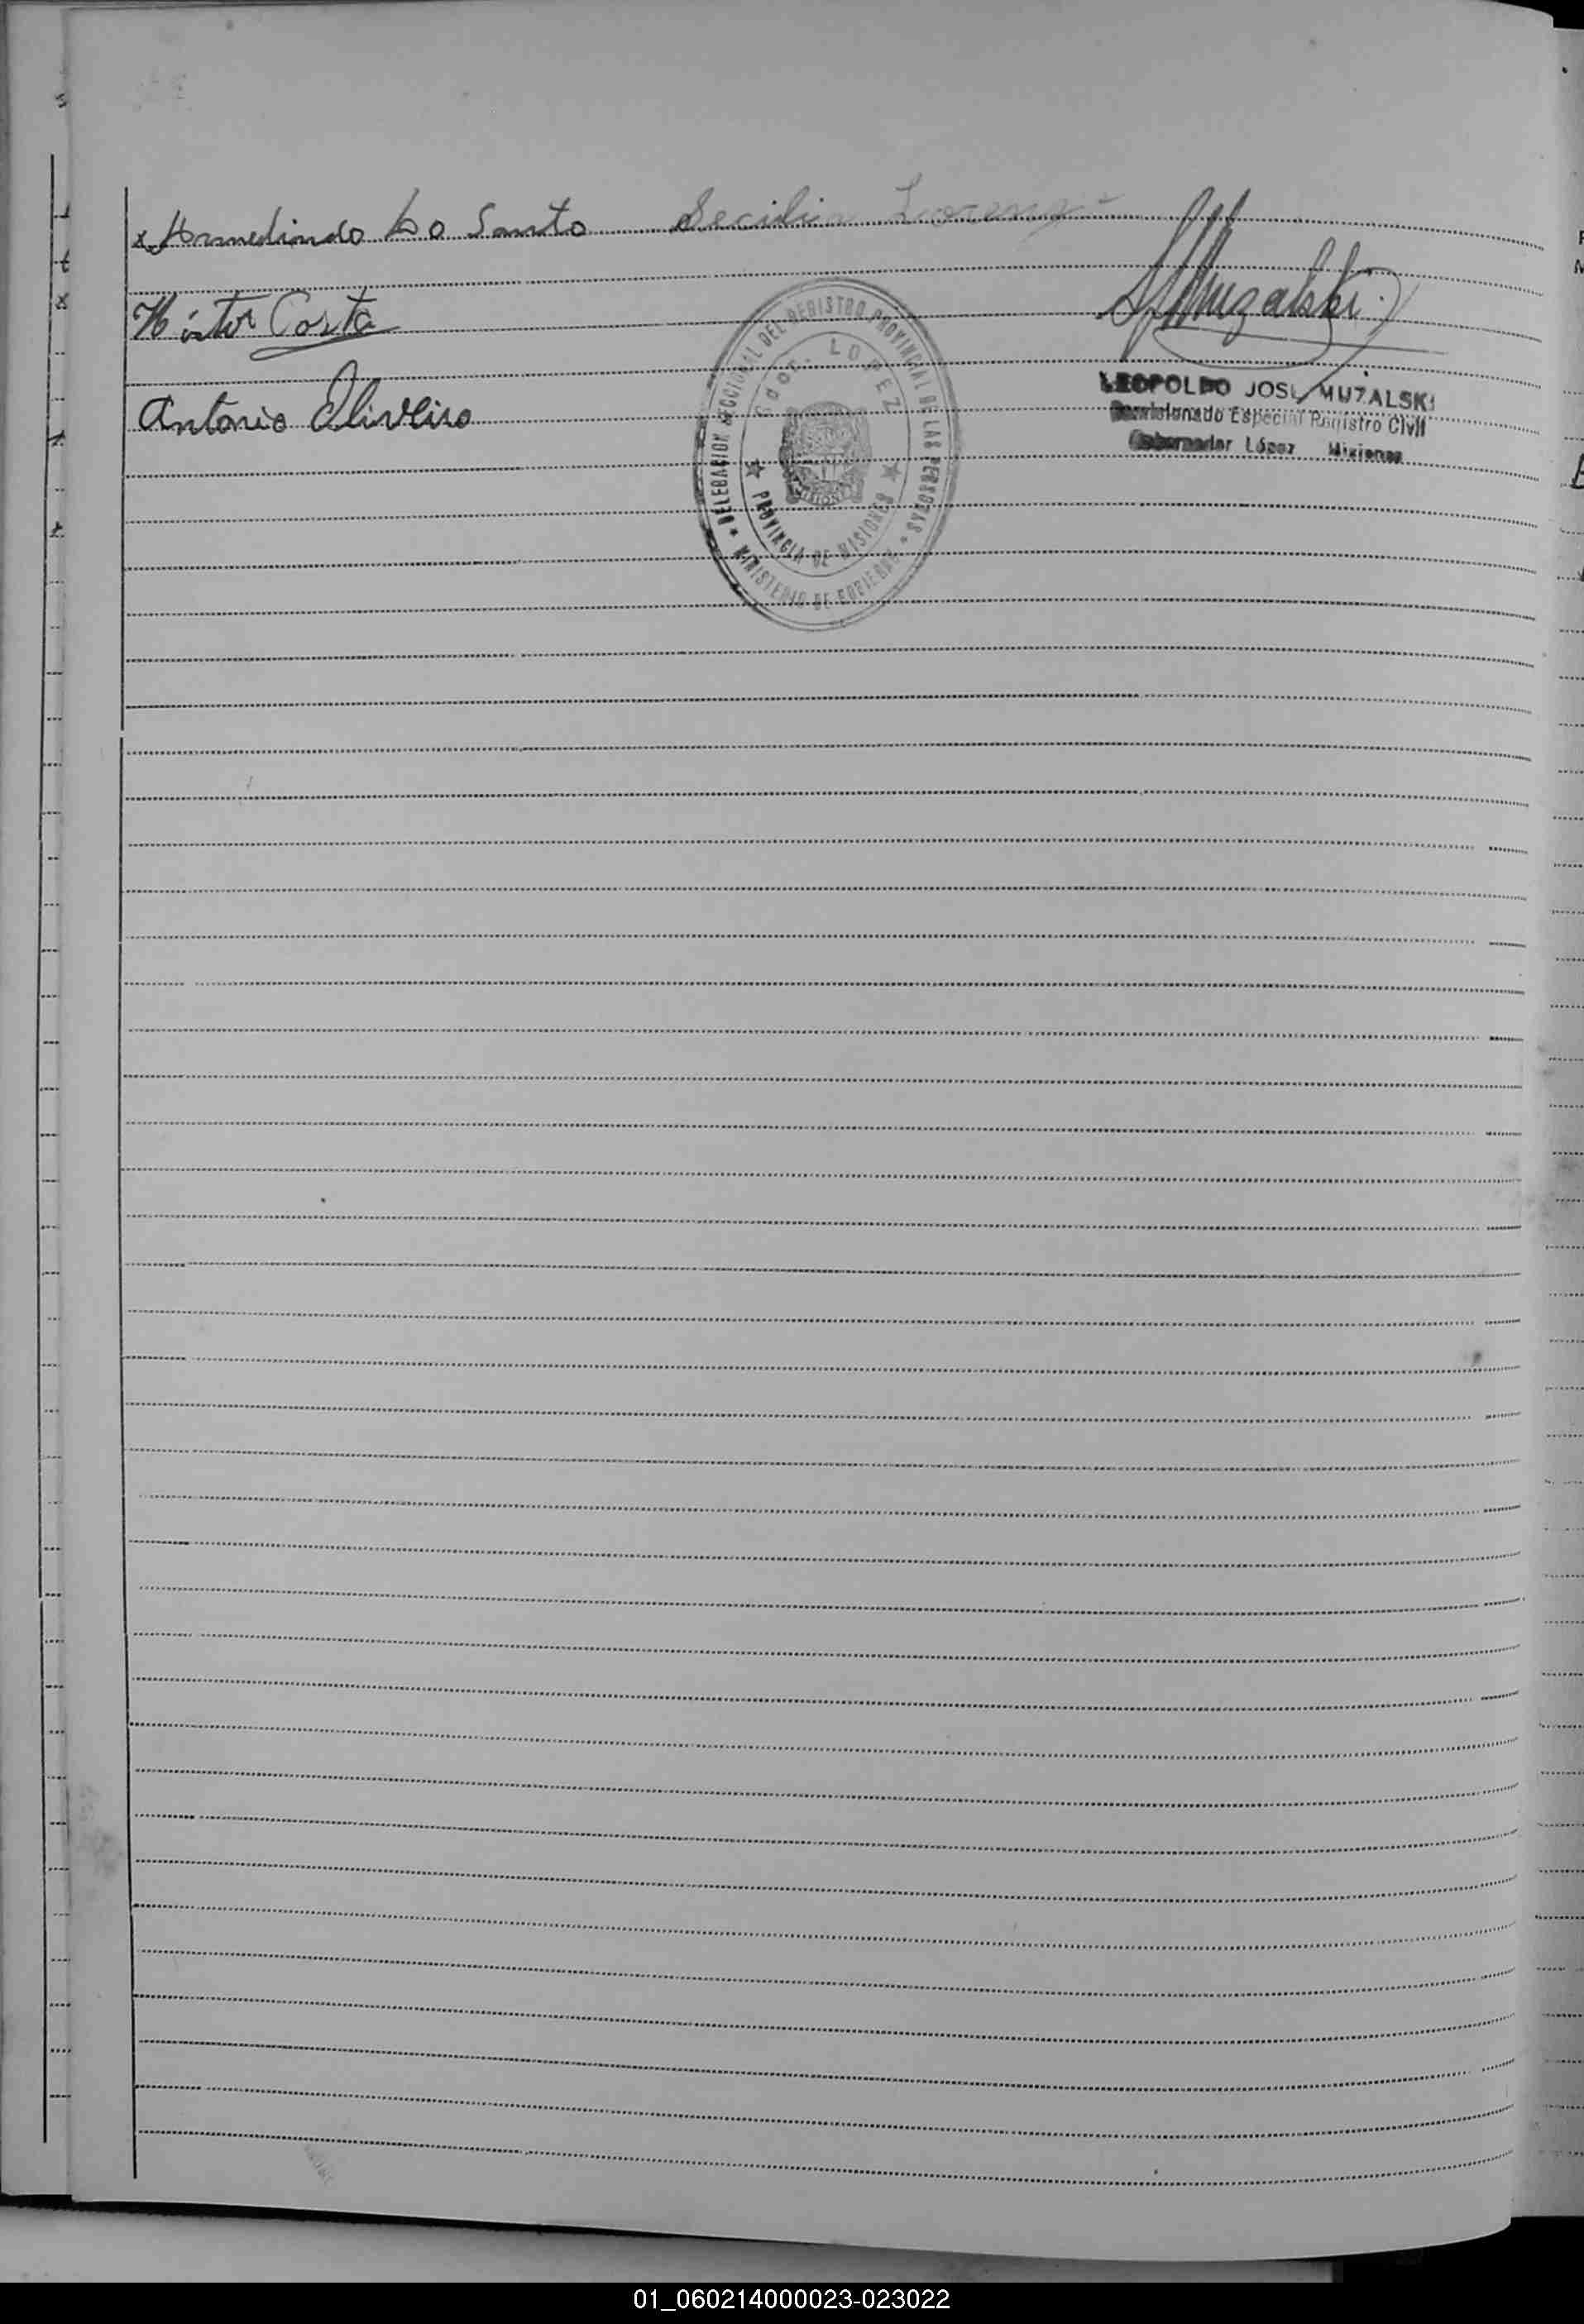 x Armedindo Do Santo Secilia Lorenz
Hóctor Costa
Muzalski
Antonio Oliveira
DELEGACION SECCIONAL DEL REGISTRO PROVINCIAL DE LAS PERSONAS
Gdor. LOPEZ
PROVINCIA DE MISIONES
MINISTERIO DE GOBIERNO
LEOPOLDO JOSE MUZALSKI
Comisionado Especial Registro Civil
Gobernador López Misiones
01_060214000023-023022